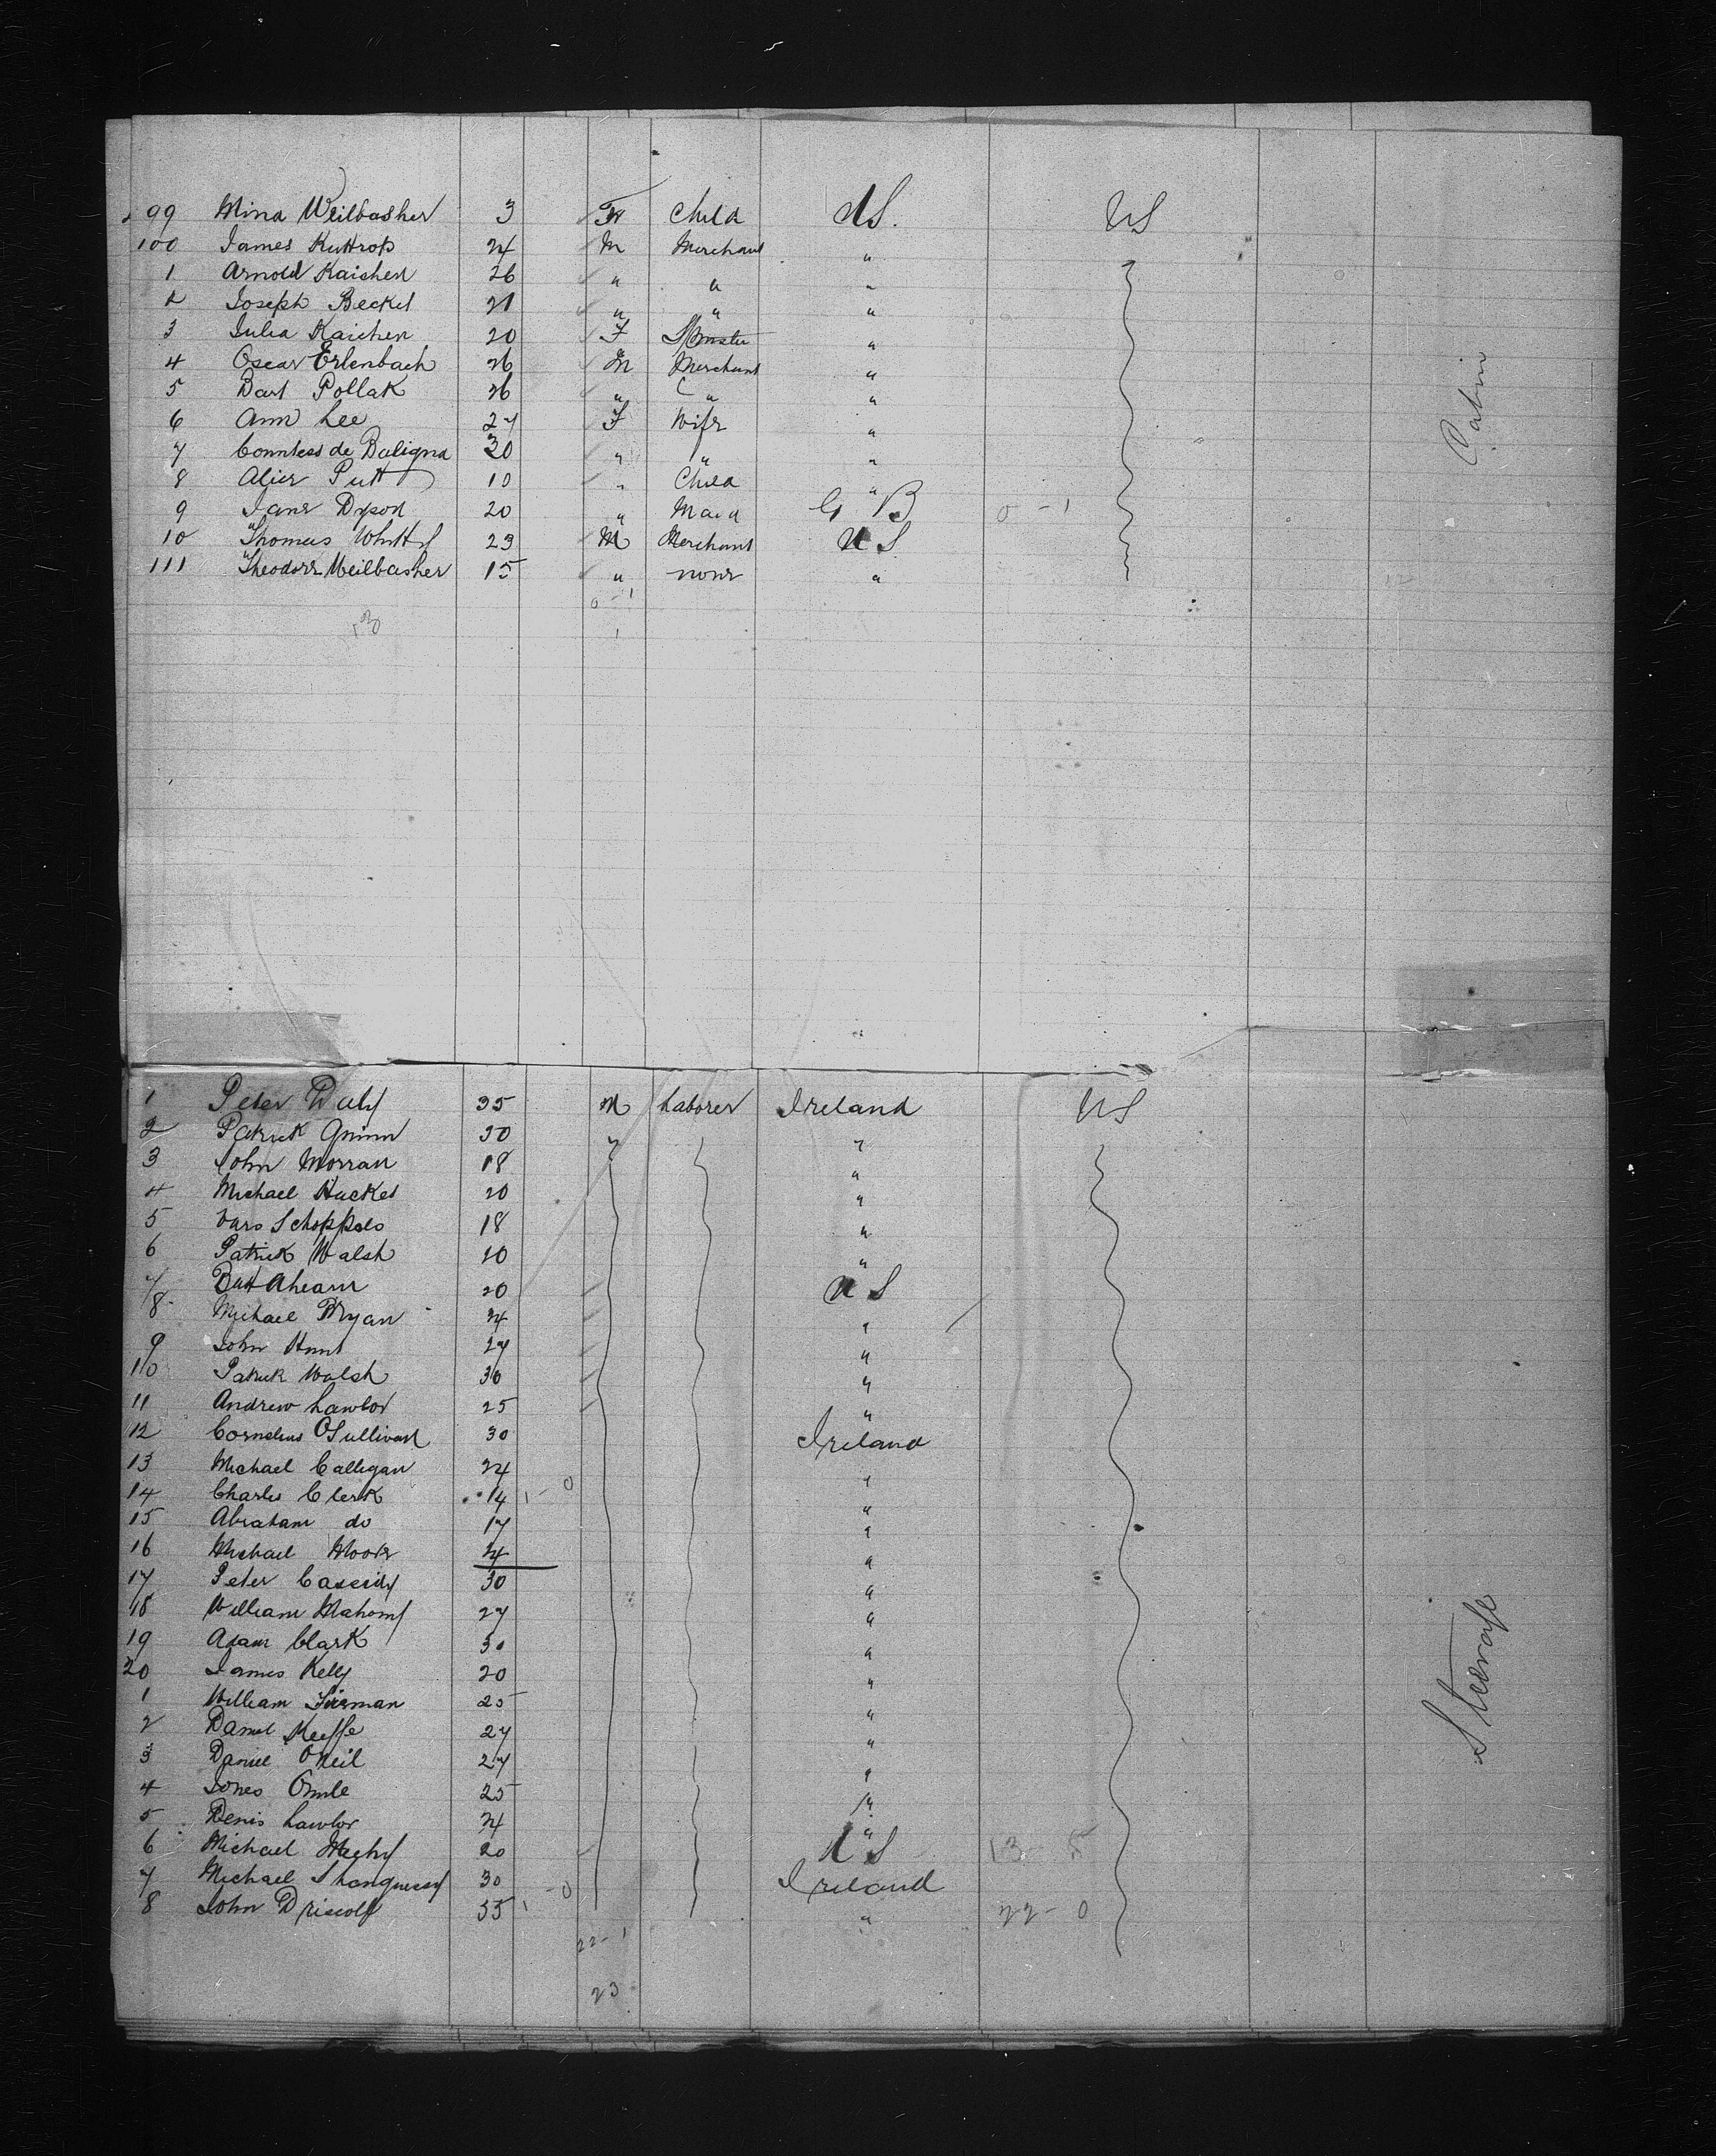 99 Mina Weilbasher 3 F Child U S. U S
100 James Kuttrop 24 M Merchant "
1 Arnold Kaichen 26 " " "
2 Joseph Becket 21 " " "
3 Julia Kaichen 20 F Spinster "
4 Oscar Erlenbach 26 M Merchant "
5 Bart Pollak 26 " " "
6 Ann Lee 27 F Wife "
7 Countess de Baligna 30 " " "
8 Alice Putt 10 " Child "
9 Jane Dyson 20 " Maid G B 0 - 1
10 Thomas 23 M Merchant U S
111 Theodore Weilbasher 15 " none " 12
0 - 1
13
1
Cabin
1 Peter Daly 35 M Laborer Ireland U S
2 Patrick Quinn 30 "
3 John Morran 18 "
4 Michael Hucket 20 "
5 18 "
6 Patrick Walsh 20 "
7 Batt Ahearn 20 U S
8 Michael Ryan 24 "
9 John Hunt 27 "
10 Patrick Walsh 30 "
11 Andrew Lawlor 25 "
12 Cornelius OSullivan 30 Ireland
13 Michael Calligan 24 "
14 Charles Clerk 14 1 - 0 "
15 Abraham do 17 "
16 Michael 24 "
17 Peter Cassidy 30 "
18 William Mahony 27 "
19 Adam Clark 30 "
20 James Kelly 20 "
1 William 25 "
2 Daniel Keeffe 27 "
3 Daniel ONeil 27 "
4 Jones 25 "
5 Denis Lawlor 24 "
6 Michael 20 U S 13 5
7 Michael Shonguessy 30 Ireland
8 John Driscoll 55 1 - 0 " 22 - 0
22 - 1
23
Steerage